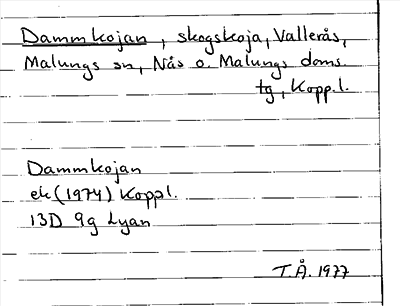 Dammkojan, skogskoja, Vallerås,
Malungs sn, Nås o. Malungs doms.
tg, Kopp.l.
Dammkojan
ek (1974) Koppl.
13D 9g Lyan
T.Å. 1977